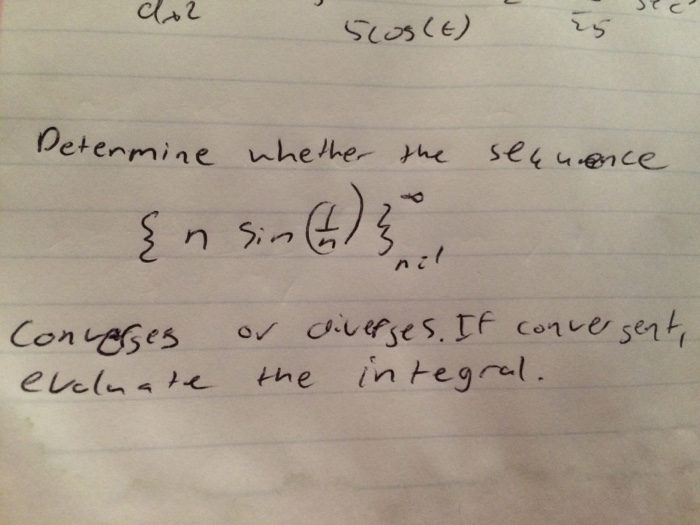 dx2
5cos(t)
25 sec
Determine whether the sequence
{ n sin(1/n) }∞n=1
Converges or diverges. If convergent,
evaluate the integral.